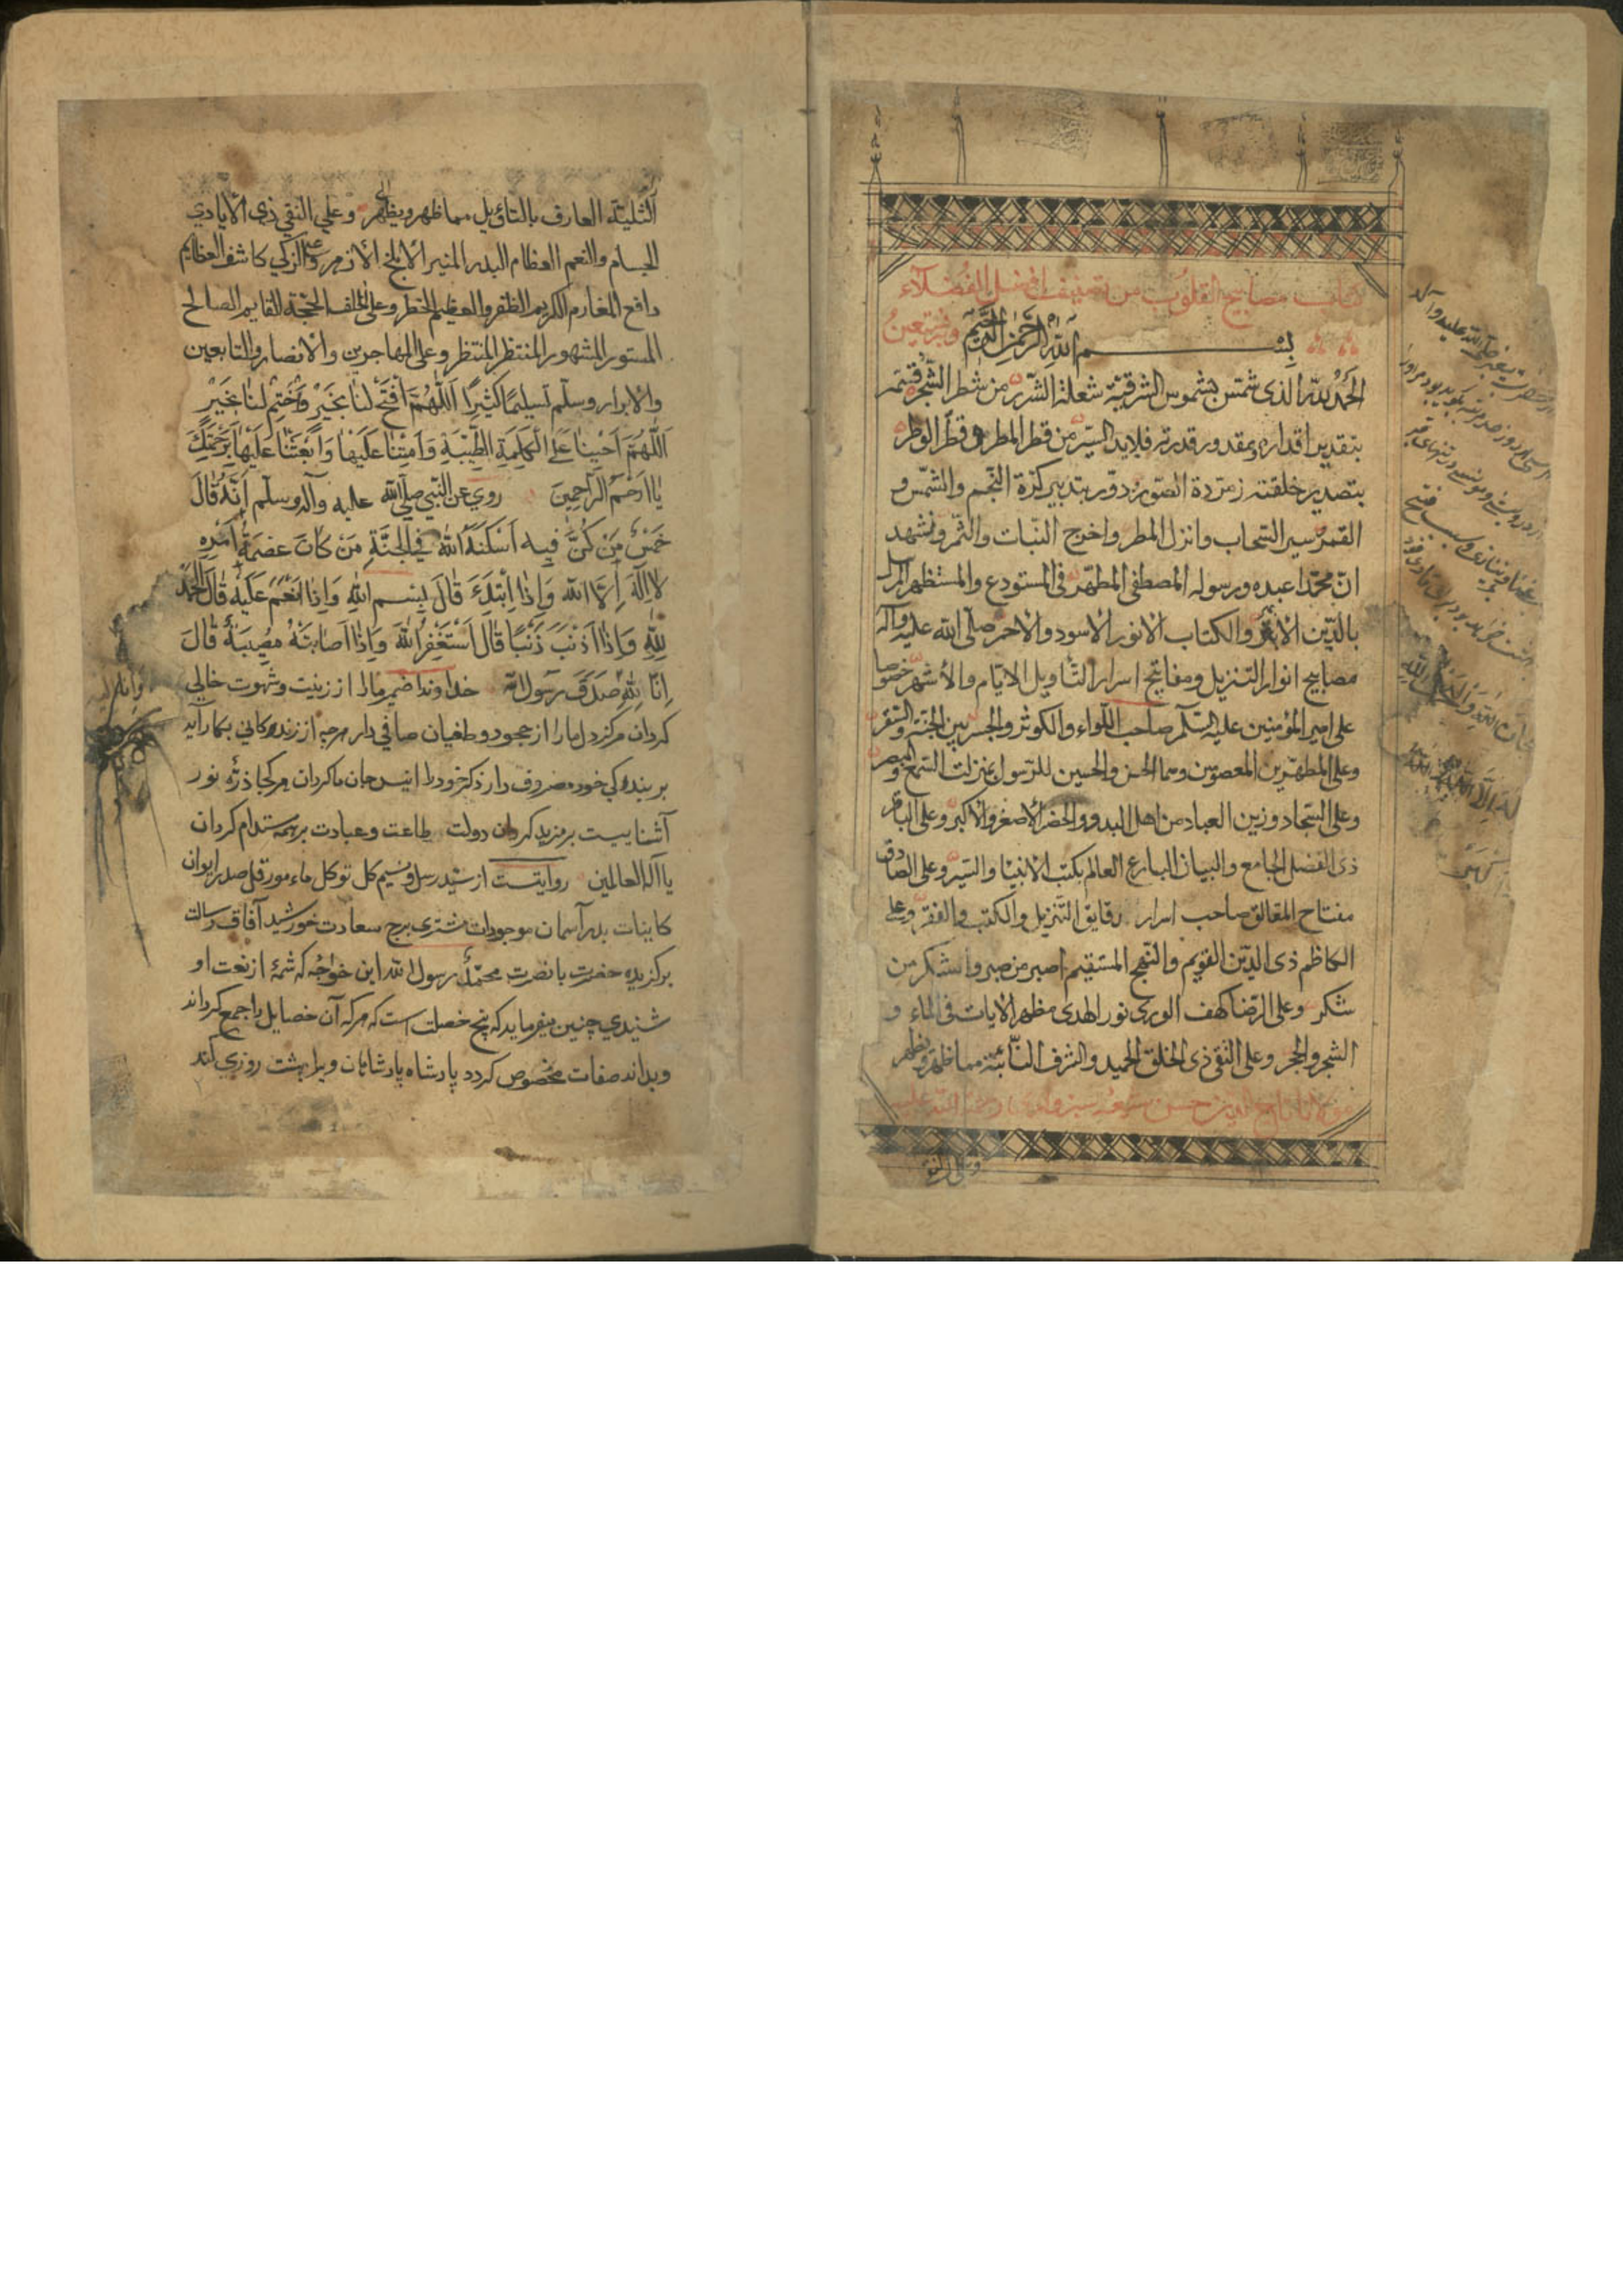 كتاب مصابيح القلوب من تصنيف افضل الفضلاء
بسم الله الرحمن الرحيم وبه نستعين
الحمد لله الذى شمس بشموس الشرقية شعلة الشرر من شطر الشجر قسمه
بتقدير اقداره وبمقدور قدرته قلايد السير من قطر المطر فى قطر الوطر
بتصدير خلقته زمردة الصور ودور بتدبير كرة النجم والشمس و
القمر وسير السحاب وانزل المطر واخرج النبات والثمر ونشهد
ان محمدا عبده ورسوله المصطفى المطهر فى المستودع والمستظهر
بالدين الازهر والكتاب الانور الاسود والاحمر صلى الله عليه وآله
مصابيح انوار التنزيل ومفاتيح اسرار التأويل الايام والأشهر خصوصا
على امير المؤمنين عليه السلم صاحب اللواء والكوثر والجسر بين الجنة والسقر
وعلى المطهرين المعصومين وهما الحسن والحسين للرسول بمنزلت السمع والبصر
وعلى السجاد وزين العباد من اهل البدو والحضر الأصغر والاكبر وعلى الباقر
ذى الفضل الجامع والبيان البارع العالم بكتب الانبيا والسير وعلى الصادق
مفتاح المغالق صاحب اسرار دقايق التنزيل والكتب والفقر وعلى
الكاظم ذى الدين القويم والنهج المستقيم اصبر من صبر واشكر من
شكر وعلى الرضا كهف الورى نور الهدى مظهر الايات فى الماء و
الشجر والحجر وعلى التقى ذى الخلق الحميد والشرف مما ظهر ويظهر
مولانا تاج الدين حسن سبزوارى رحمة الله عليه
وعلى النقى
العارف بالتاويل مما ظهر ويظهر وعلي النقي ذي الأيادي
الجسام والنعم العظام البدر المنير الأبلج الأزهر وعلى الزكي كاشف العظايم
دافع المغارم الكريم الظفر والعظيم الخطر وعلى الخلف الحجة القايم الصالح
المستور المشهور المنتظر المنتظر وعلى المهاجرين والانصار والتابعين
والابرار وسلم تسليما كثيرا اللهم افتح لنا بخير واختم لنا بخير
اللهم احينا على الكلمة الطيبة وامتنا عليها وابعثنا عليها برحمتك
يا ارحم الراحمين روي عن النبي صلى الله عليه وآله وسلم انه قال
خمس من كن فيه اسكنه الله في الجنة من كان عصمة امره
لا اله الا الله واذا ابتدء قال بسم الله واذا انعم عليه قال الحمد
لله واذا اذنب ذنبا قال استغفر الله واذا اصابته مصيبة قال
انا لله صدق رسول الله خداوندا ضمير ما را از زينت وشهوت خالي
كردان مركز دل ما را از جحود وطغيان صافي دار هرچه از زنده كاني بكار آيد
بر بنده كي خود مصروف دار ذكر خود را انيس جان ما كردان هر كجا ذره نور
آشنايیست بر مزيد كردان دولت طاعت وعبادت بر همه مستدام كردان
يا اله العالمين روايتست از سيد رسل صدر ايوان
كاينات بدر آسمان موجودات مشترى برج سعادت خورشيد آفاق رسالت
بركزيده حضرت با نصرت محمد رسول الله اين خواجه كه شمهٔ از نعت او
شنيدي چنين ميفرمايد كه پنج خصلت است كه هر كه آن خصايل را جمع كرداند
وبدان صفات مخصوص كردد پادشاه پادشاهان ويرا بهشت روزي كند